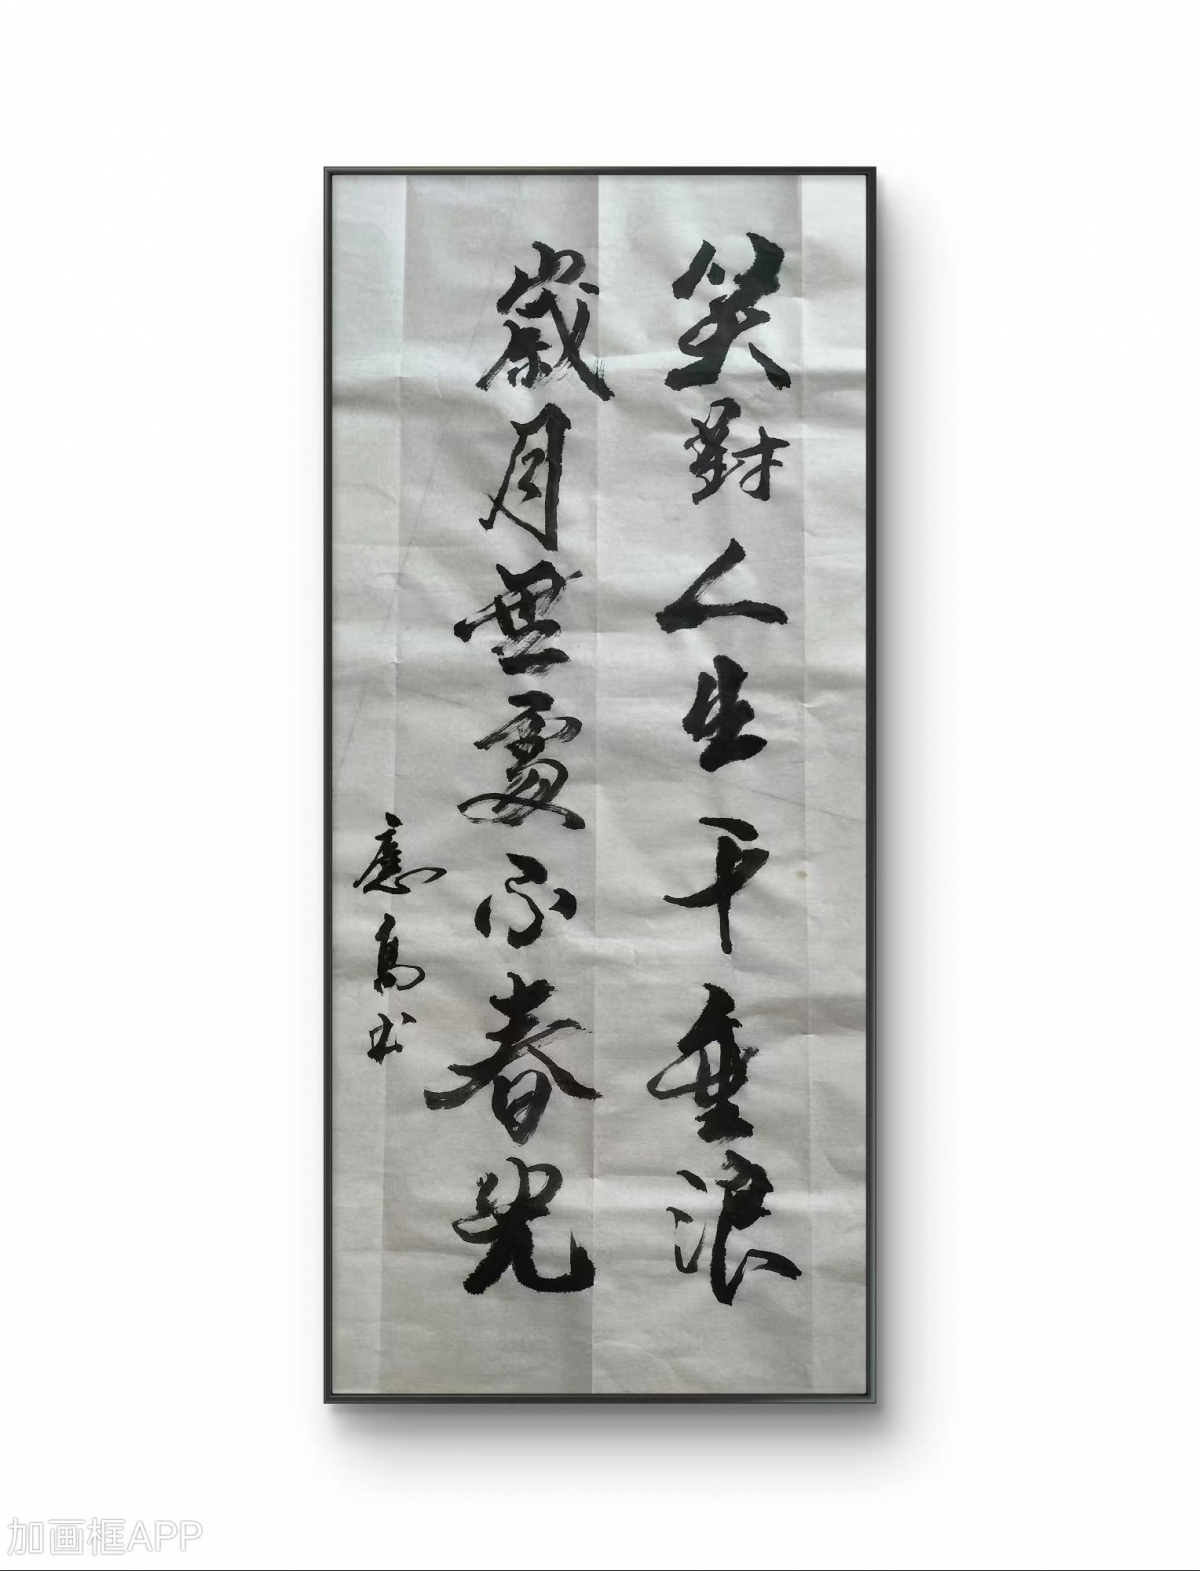 笑對人生千重浪
歲月無處不春光
應书
加画框APP